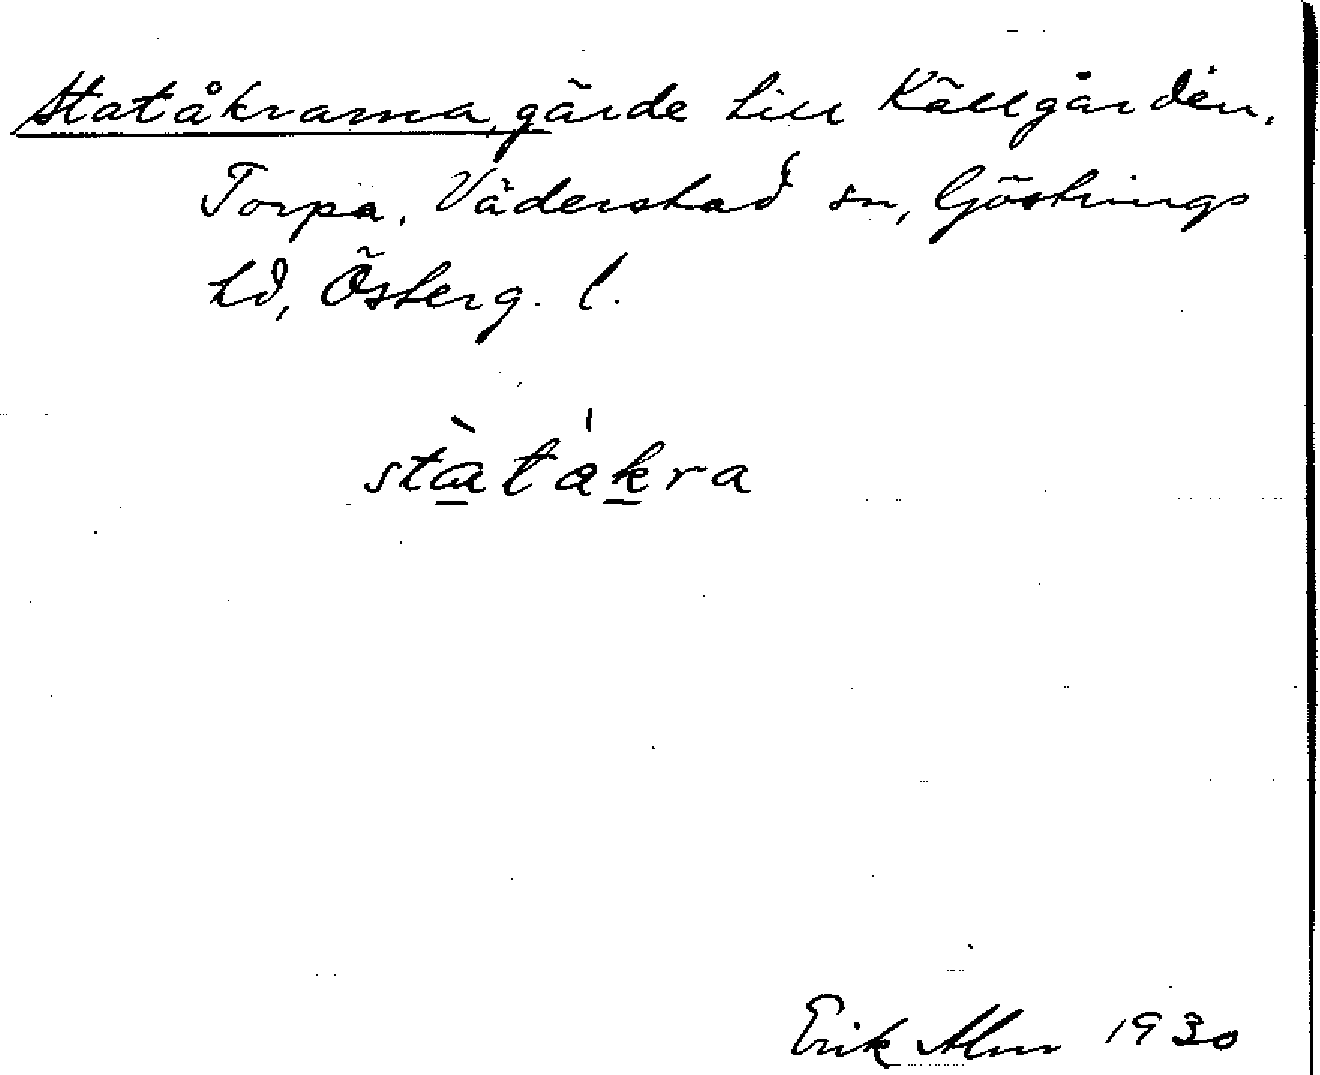 Statåkrarna, gärde till Källgården,
Torpa, Väderstad sn, Göstrings
hd, Österg. l.
stàtákra
Erik Alm 1930